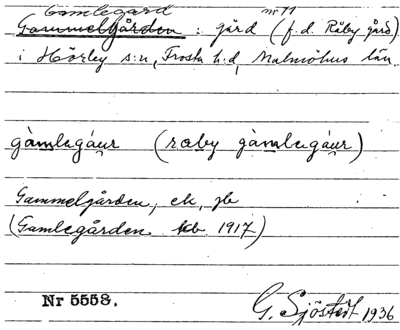 Gamlegård nr 11
Gammelgården : gård (f.d. Råby gård)
i Hörby s:n, Frosta h:d, Malmöhus län.
gàmlegáur (raby gàmlegáur)
Gammelgården, ek, jb
(Gamlegården kb. 1917)
Nr 5558. G. Sjöstedt 1936